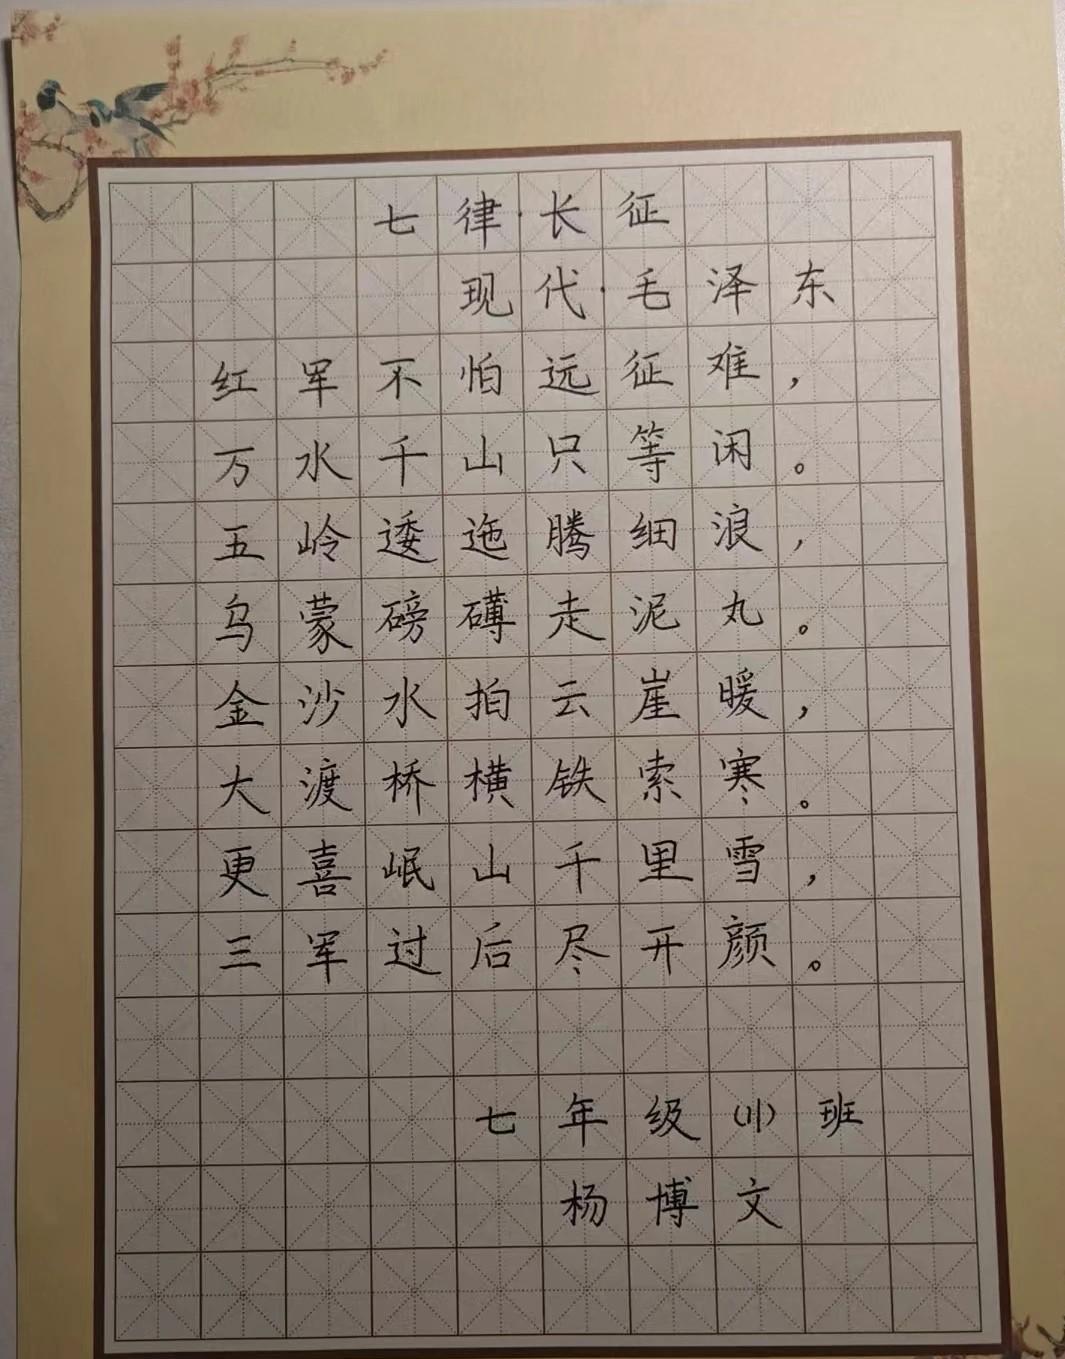 七律·长征
现代·毛泽东
红军不怕远征难，
万水千山只等闲。
五岭逶迤腾细浪，
乌蒙磅礴走泥丸。
金沙水拍云崖暖，
大渡桥横铁索寒。
更喜岷山千里雪，
三军过后尽开颜。
七年级(1)班
杨博文